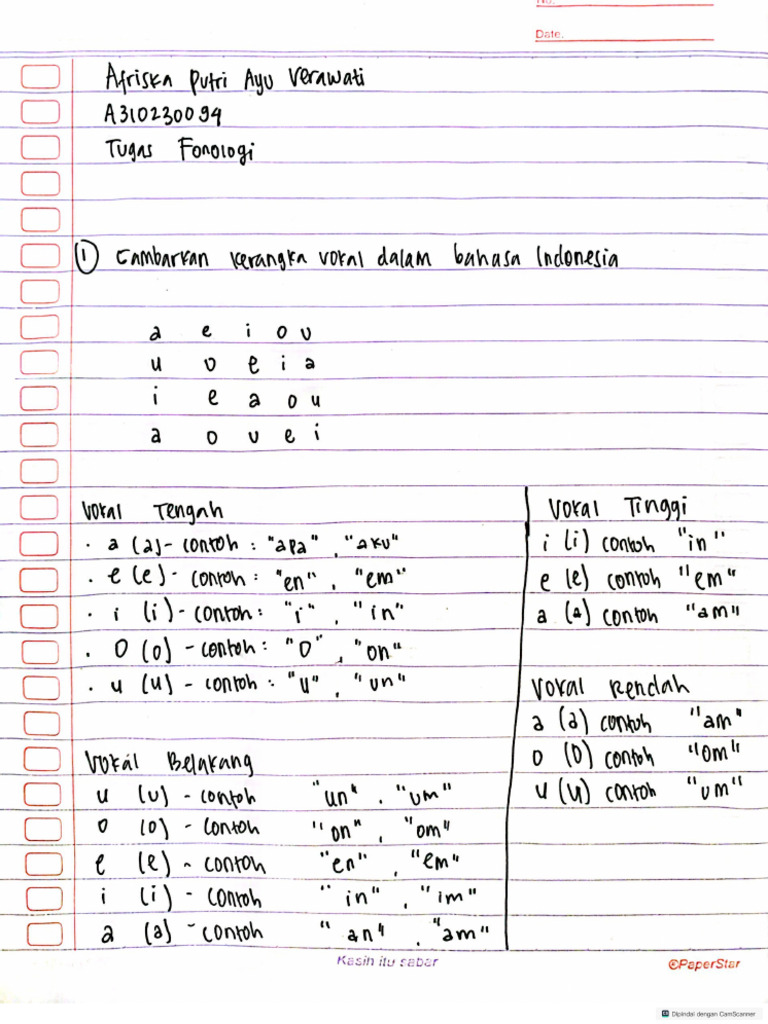 No.
Date.
Afriska Putri Ayu Verawati
A310230094
Tugas Fonologi
1 Gambarkan kerangka vokal dalam bahasa Indonesia
a e i o u
u o e i a
i e a o u
a o u e i
Vokal Tengah
. a (a) - contoh : "apa" , "aku"
. e (e) - contoh : "en" , "em"
. i (i) - contoh : "i" , "in"
. O (o) - contoh : "O" , "on"
. u (u) - contoh : "u" , "un"
Vokal Belakang
u (u) - contoh "un" , "um"
o (o) - contoh "on" , "om"
e (e) - contoh "en" , "em"
i (i) - contoh "in" , "im"
a (a) - contoh "an" , "am"
Vokal Tinggi
i (i) contoh "in"
e (e) contoh "em"
a (a) contoh "am"
Vokal Rendah
a (a) contoh "am"
o (o) contoh "om"
u (u) contoh "um"
Kasih itu sabar
©PaperStar
CS Dipindai dengan CamScanner